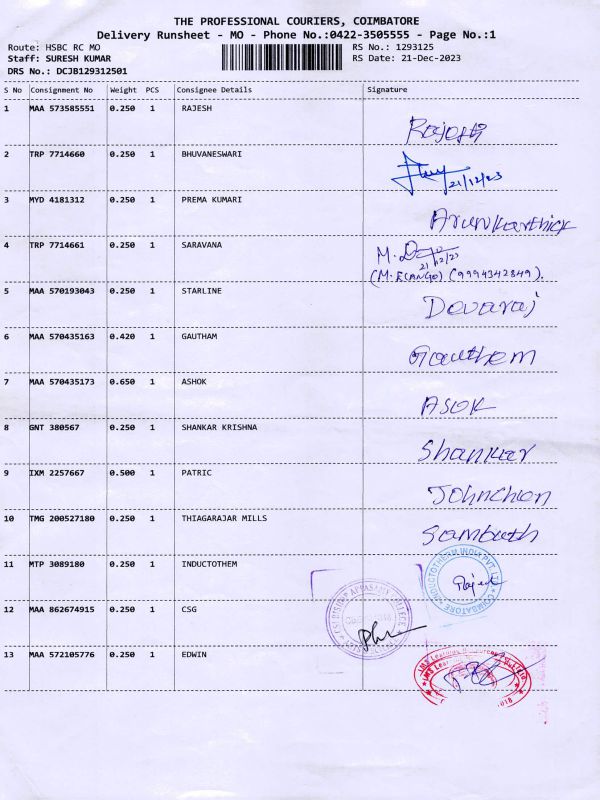 THE PROFESSIONAL COURIERS, COIMBATORE
Delivery Runsheet - MO - Phone No.:0422-3505555 - Page No.:1
Route: HSBC RC MO RS No.: 1293125
Staff: SURESH KUMAR RS Date: 21-Dec-2023
DRS No.: DCJB129312501
S No Consignment No Weight PCS Consignee Details Signature
1 MAA 573585551 0.250 1 RAJESH
Rajesh
2 TRP 7714660 0.250 1 BHUVANESWARI
21/12/23
3 MYD 4181312 0.250 1 PREMA KUMARI
Arunkarthick
4 TRP 7714661 0.250 1 SARAVANA
M.
21/12/23
(M. ELANGO) (9994342849).
5 MAA 570193043 0.250 1 STARLINE
Devaraj
6 MAA 570435163 0.420 1 GAUTHAM
Gauthem
7 MAA 570435173 0.650 1 ASHOK
ASOK
8 GNT 380567 0.250 1 SHANKAR KRISHNA
Shankar
9 IXM 2257667 0.500 1 PATRIC
Johnchon
10 TMG 200527180 0.250 1 THIAGARAJAR MILLS
Sambuth
11 MTP 3089180 0.250 1 INDUCTOTHEM
INDUCTOTHERM INDIA PVT. LTD
COIMBATORE
12 MAA 862674915 0.250 1 CSG
CSI BISHOP APPASAMY COLLEGE
13 MAA 572105776 0.250 1 EDWIN